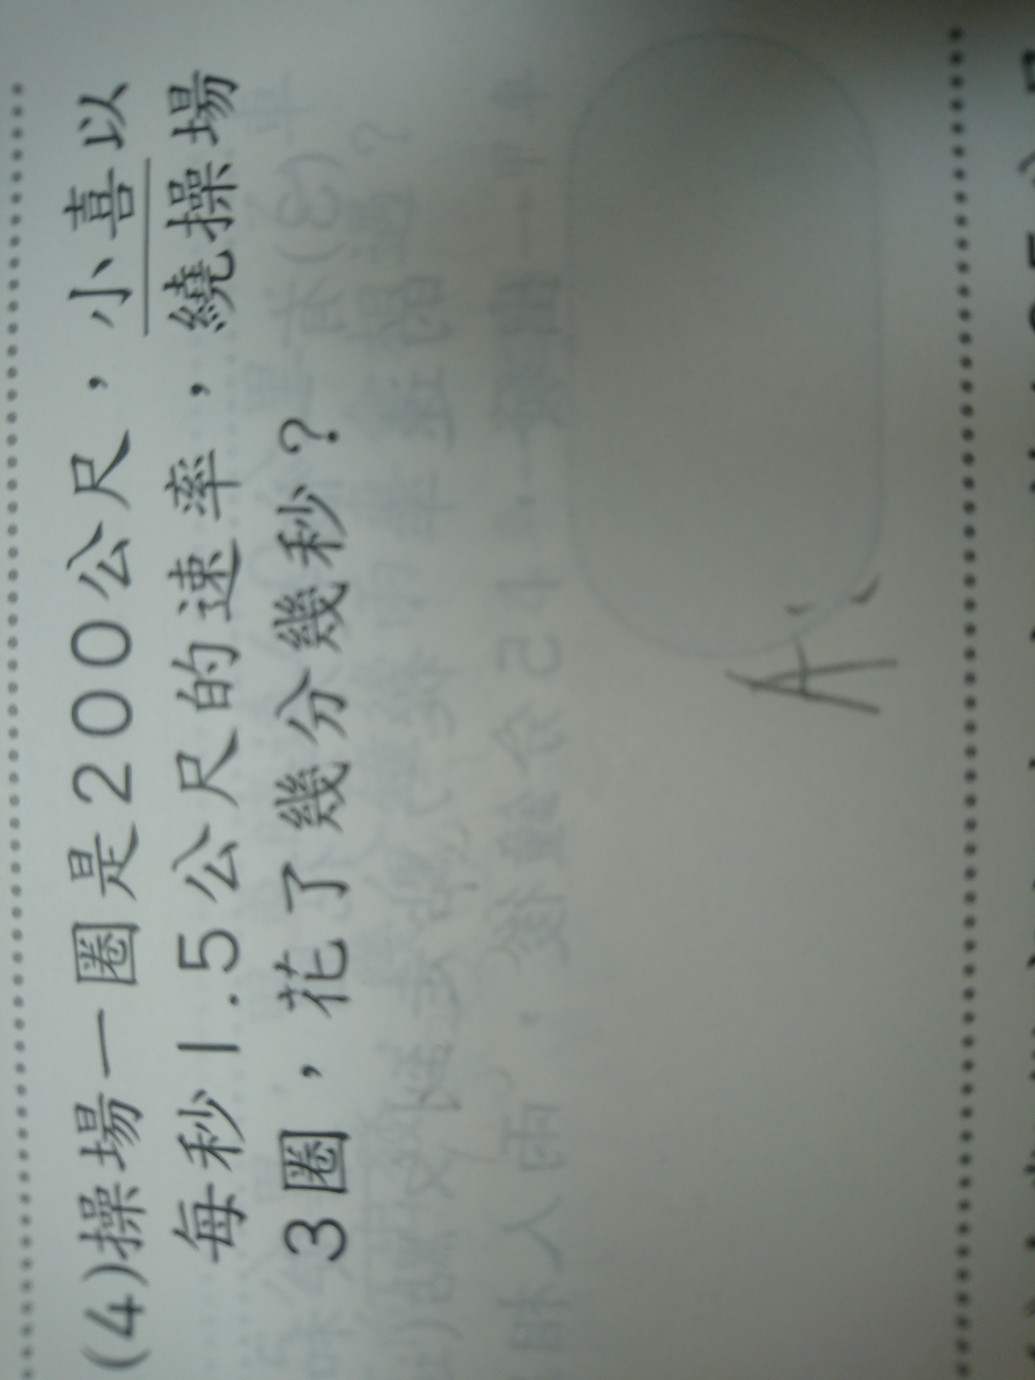 (4)操場一圈是200公尺，小喜以
每秒1.5公尺的速率，繞操場
3圈，花了幾分幾秒？
A：